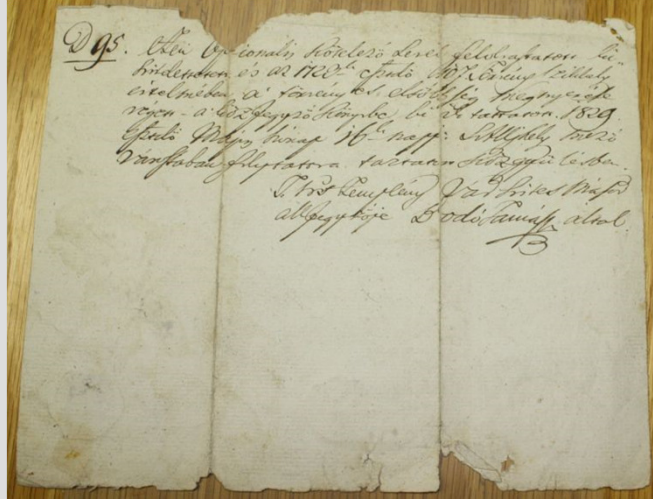 D 95. Ezen Optionalis Kötelező Levél felolvastatott, ki-
hirdettetett és az 1723ik Eszndő 107. Törvény Czikkely
értelmében a törvényes elsőbbség megnyerése
végett a Közjegyző Könyvbe bé iktattatott. 1829
Esztndő Május hónap 16ik napj: S.A.Ujhely mező
Várossában folytatva tartatott Közgyűlésbe
T. Ns Zemplény Vármegye
all Jegyzője Bodó Tamás által